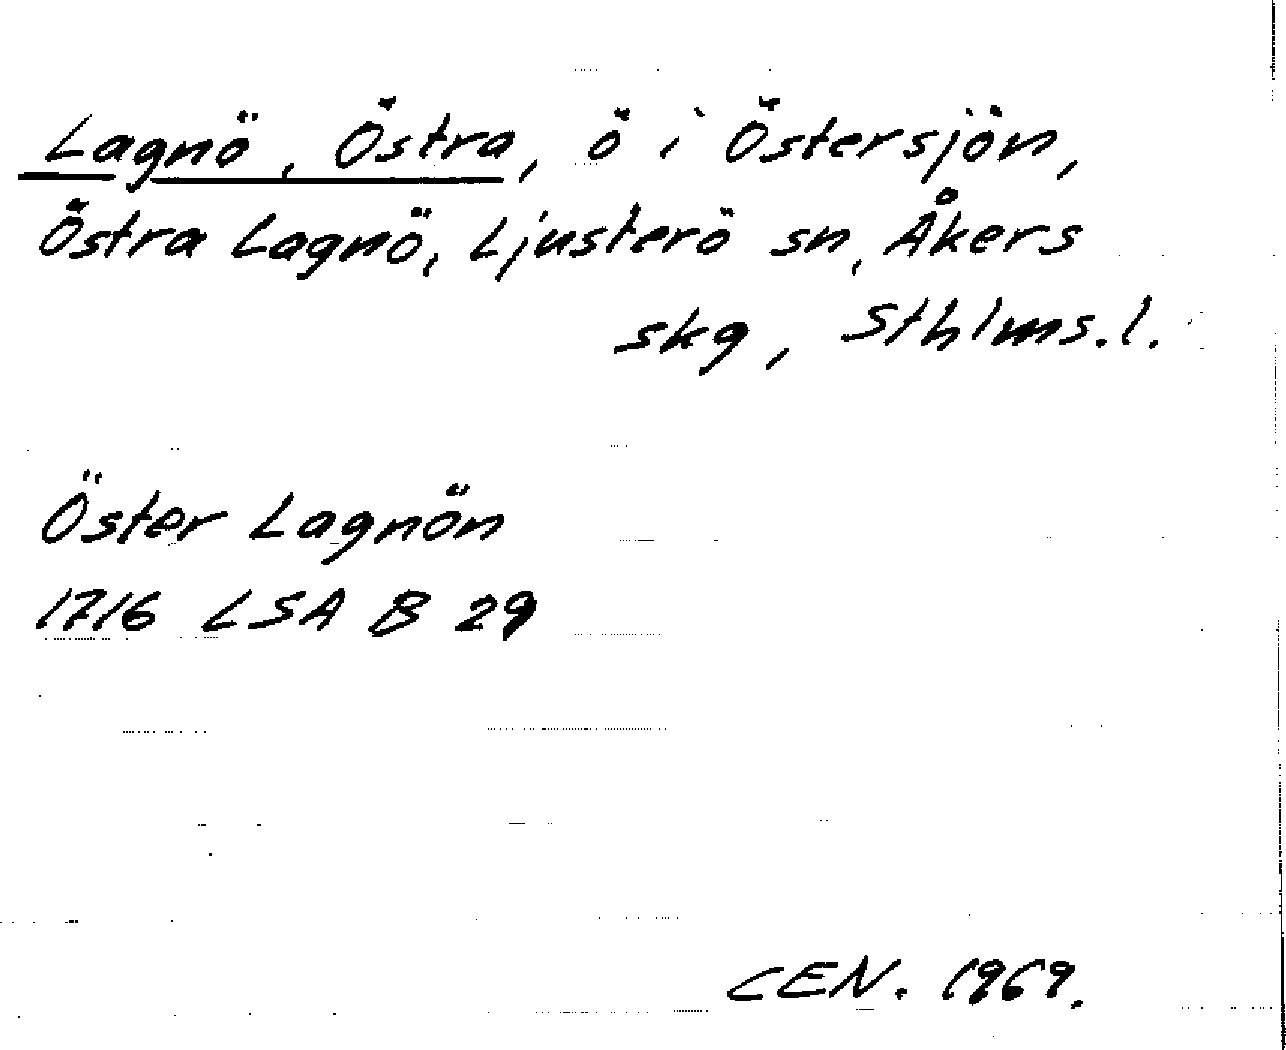 Lagnö, Östra, ö i Östersjön,
Östra Lagnö, Ljusterö sn, Åkers
skg, Sthlms.l.
Öster Lagnön
1716 LSA B 29
CEN. 1969.